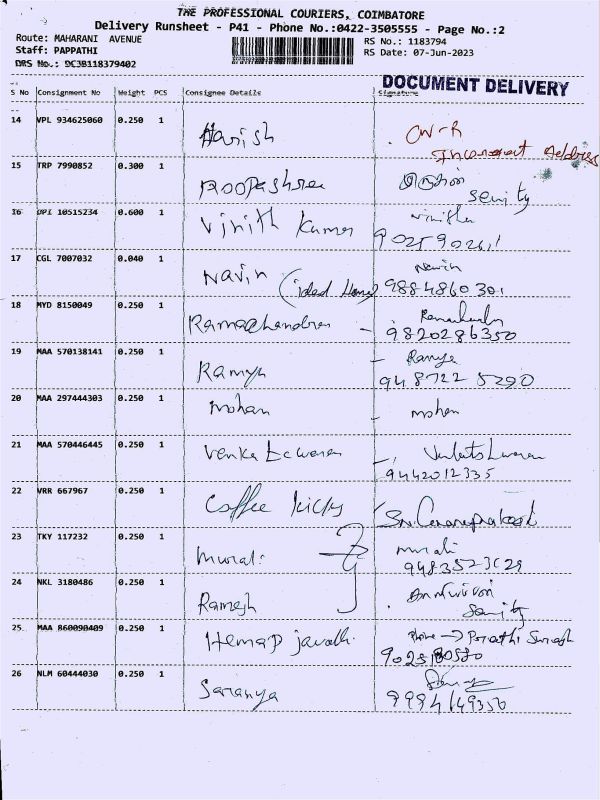 THE PROFESSIONAL COURIERS, COIMBATORE
Delivery Runsheet - P41 - Phone No.:0422-3505555 - Page No.:2
Route: MAHARANI AVENUE
RS No.: 1183794
Staff: PAPPATHI
RS Date: 07-Jun-2023
DRS No.: DCJB118379402
DOCUMENT DELIVERY
S No Consignment No Weight PCS Consignee Details Signature
14 VPL 934625060 0.250 1 Harish CW-R
Incorrect Address
15 TRP 7990852 0.300 1 Roopashree
16 OPI 10515234 0.600 1 Vinith Kumar
17 CGL 7007032 0.040 1 Navin Navin
9884860301
18 MYD 8150049 0.250 1 Ramachandran
9820286350
19 MAA 570138141 0.250 1 Ramya Ramya
948722 5290
20 MAA 297444303 0.250 1 mohan mohan
21 MAA 570446445 0.250 1
9442012335
22 VRR 667967 0.250 1 Coffee kicks
23 TKY 117232 0.250 1 Murali murali
24 NKL 3180486 0.250 1 Ramesh
25 MAA 860090409 0.250 1
26 NLM 60444030 0.250 1 Saranya
9994149350